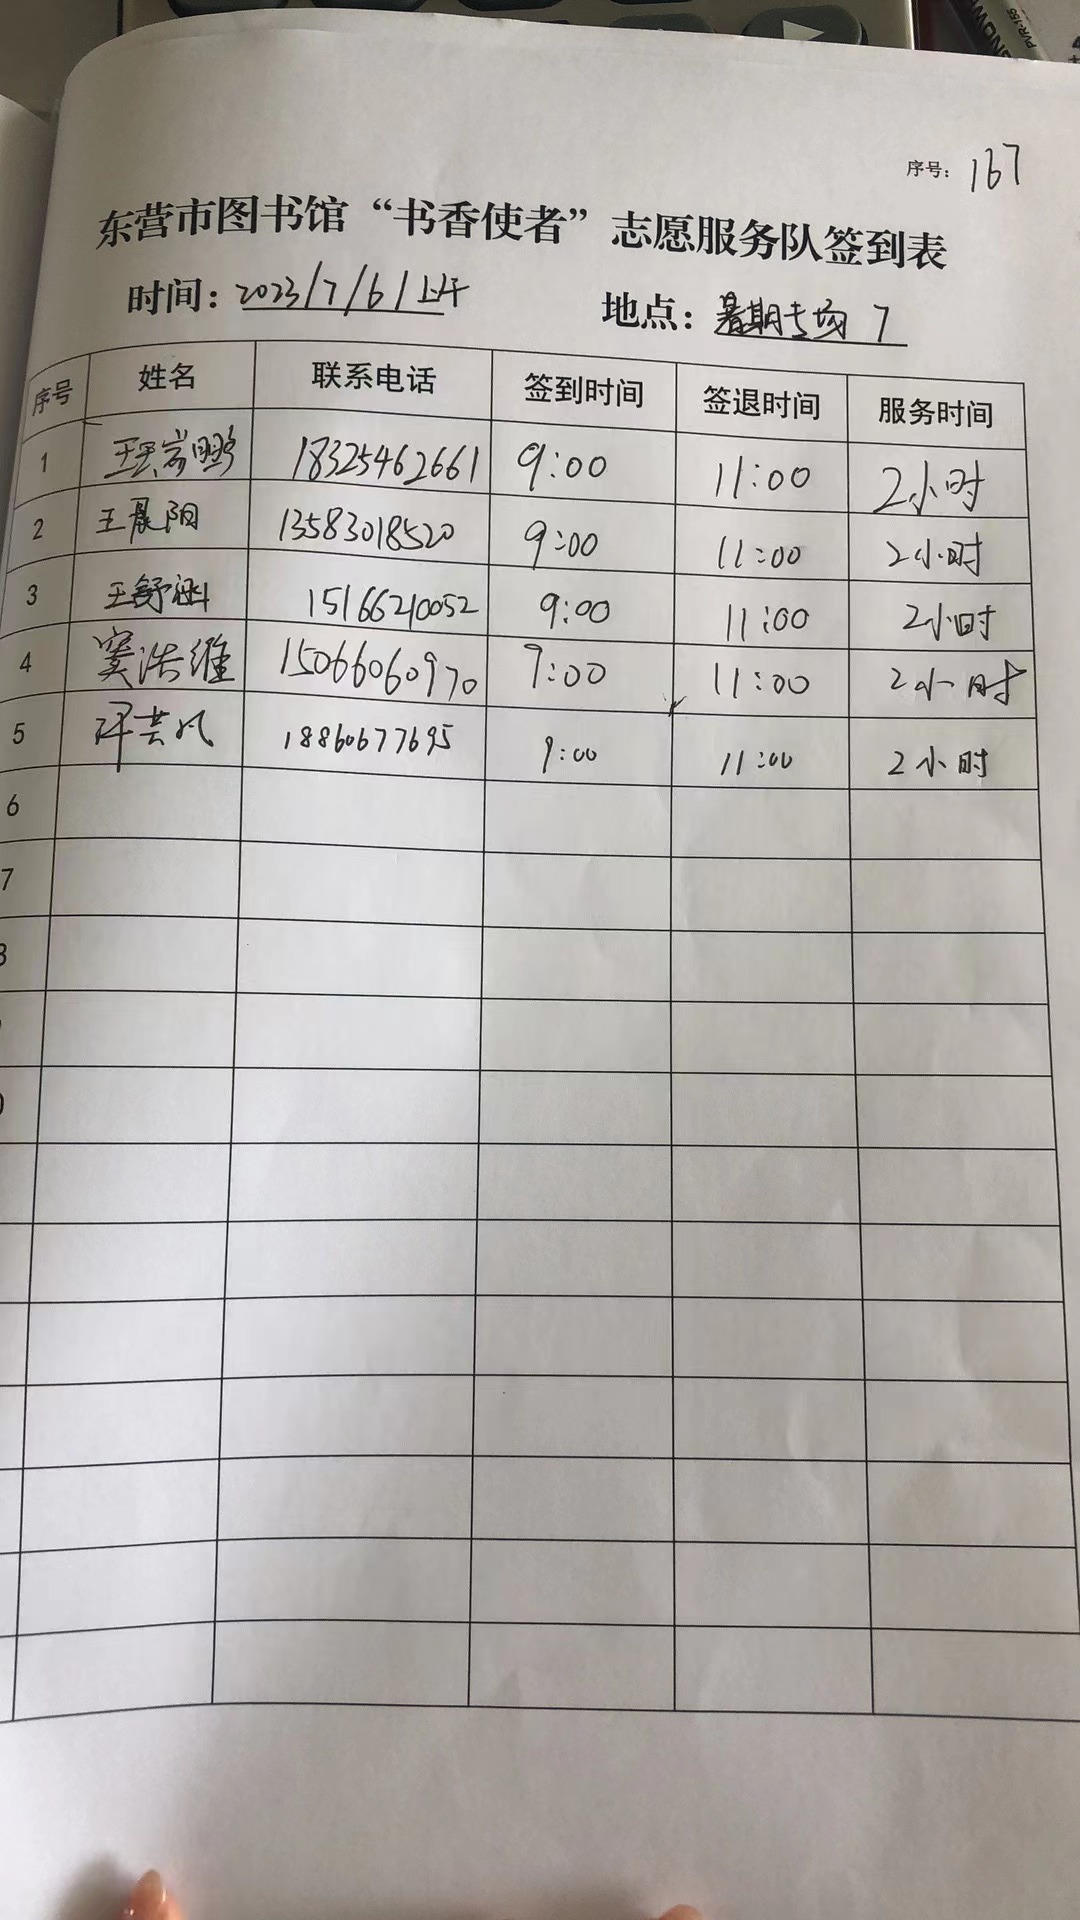 序号: 167
东营市图书馆“书香使者”志愿服务队签到表
时间: 2023/7/6/上午 地点: 暑期专场 7
序号 姓名 联系电话 签到时间 签退时间 服务时间
1 18325462661 9:00 11:00 2小时
2 王晨阳 13583018520 9:00 11:00 2小时
3 王舒涵 15166210052 9:00 11:00 2小时
4 窦浩维 15066060970 9:00 11:00 2小时
5 18860677695 9:00 11:00 2小时
6
7